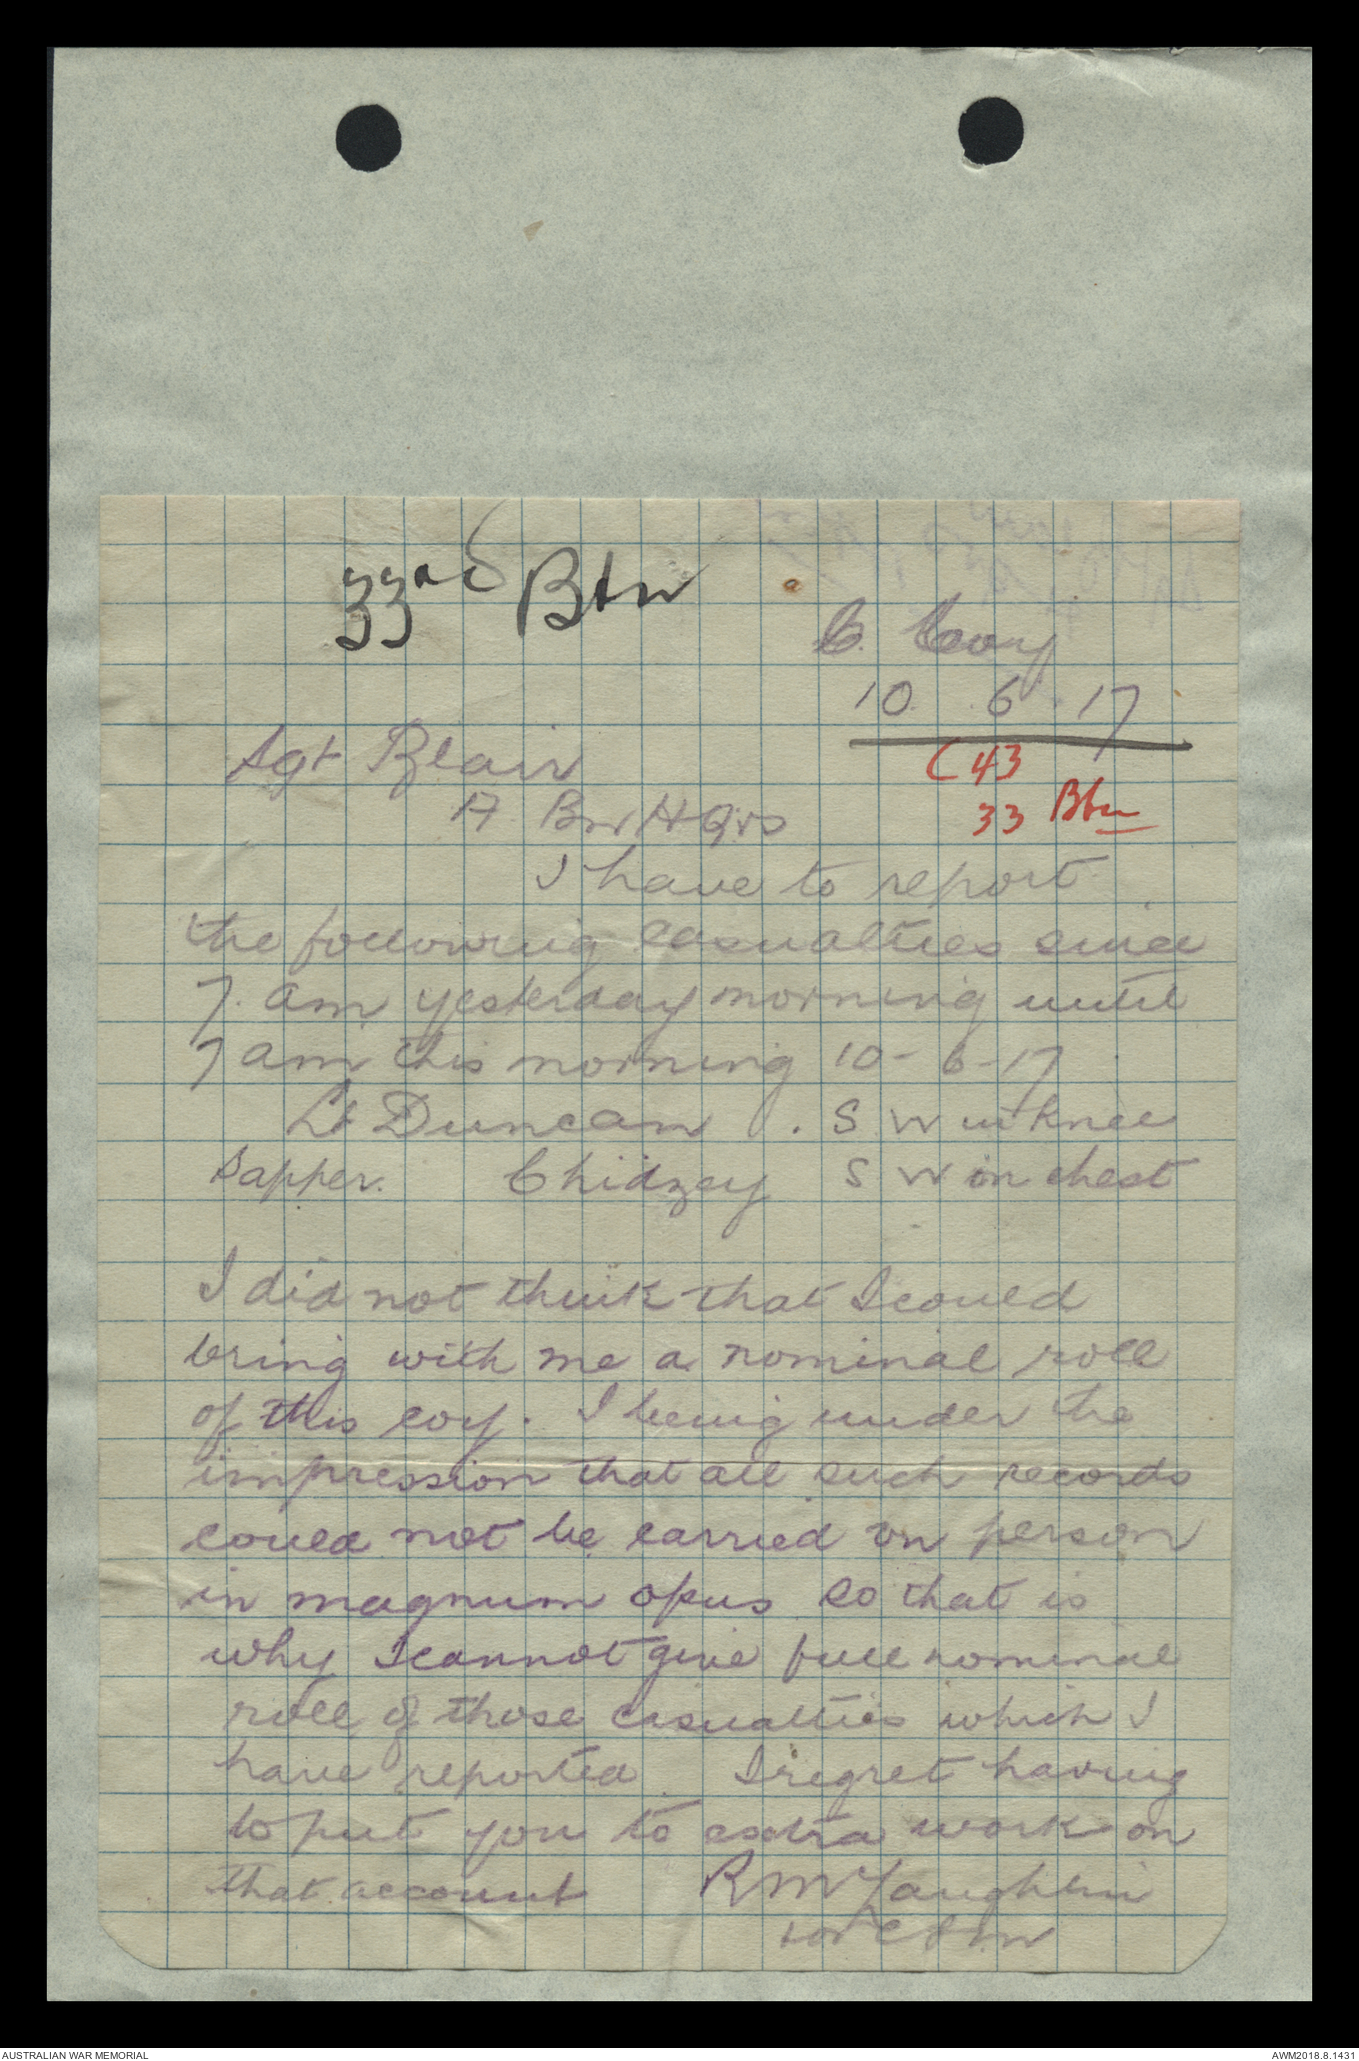 33rd Btn
C. Cooy
10 . 6 . 17
C 43
33 Btn
Sgt Blair
Bn H Qrs
I have to report
the following casualties since
7. am yesterday morning until
7 am this morning 10-6-17
Lt Duncan . S W in Knee
Sapper. Chidzey S W in chest
I did not think that I could
bring with me a nominal roll
of this coy. I being under the
impression that all such records
could not be carried on person
in magnum opus so that is
why I cannot give full nominal
roll of those casualties which I
have reported. I regret having
to put you to extra work on
that account R McLaughlin
AUSTRALIAN WAR MEMORIAL
AWM2018.8.1431